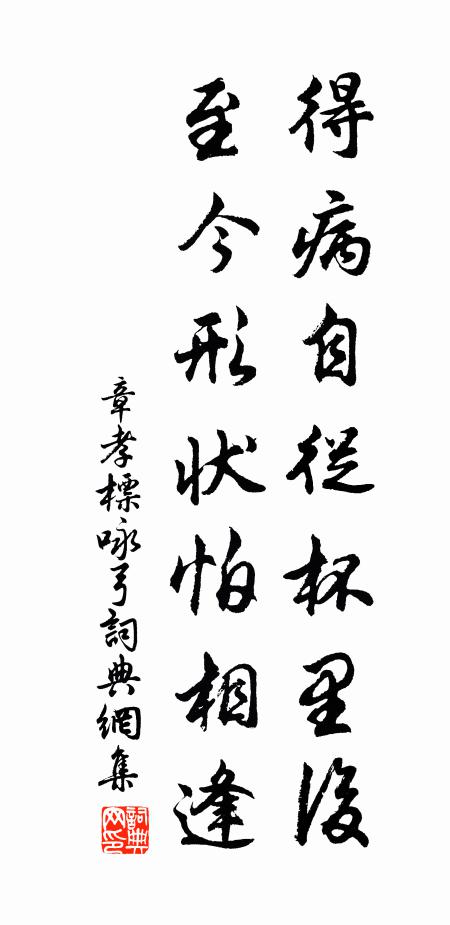 得病自從杯里後
至今形狀怕相逢
章孝標咏弓詞典網集
詞典
网印